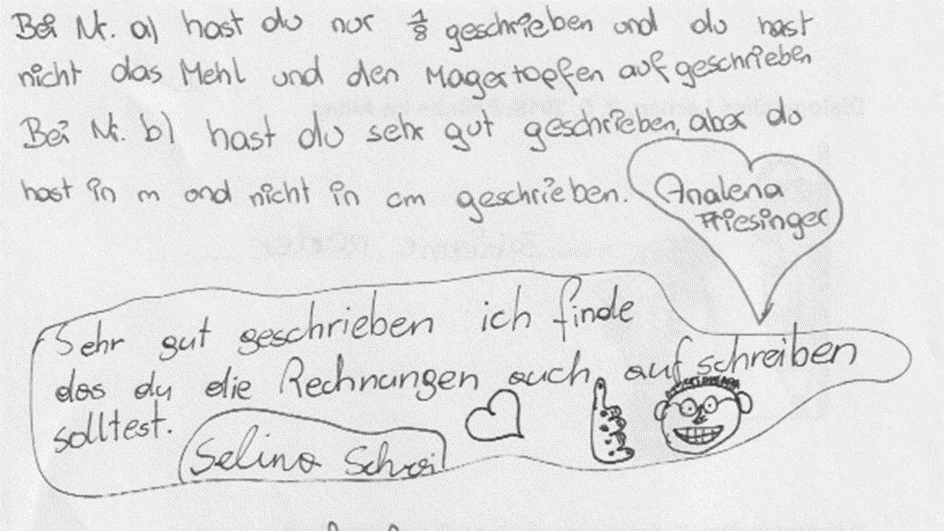 Bei Nr. a) hast du nur 1/8 geschrieben und du hast
nicht das Mehl und den Magertopfen aufgeschrieben
Bei Nr. b) hast du sehr gut geschrieben, aber du
hast in m und nicht in cm geschrieben.
Analena
Friesinger
Sehr gut geschrieben ich finde
das du die Rechnungen auch aufschreiben
solltest.
Selina